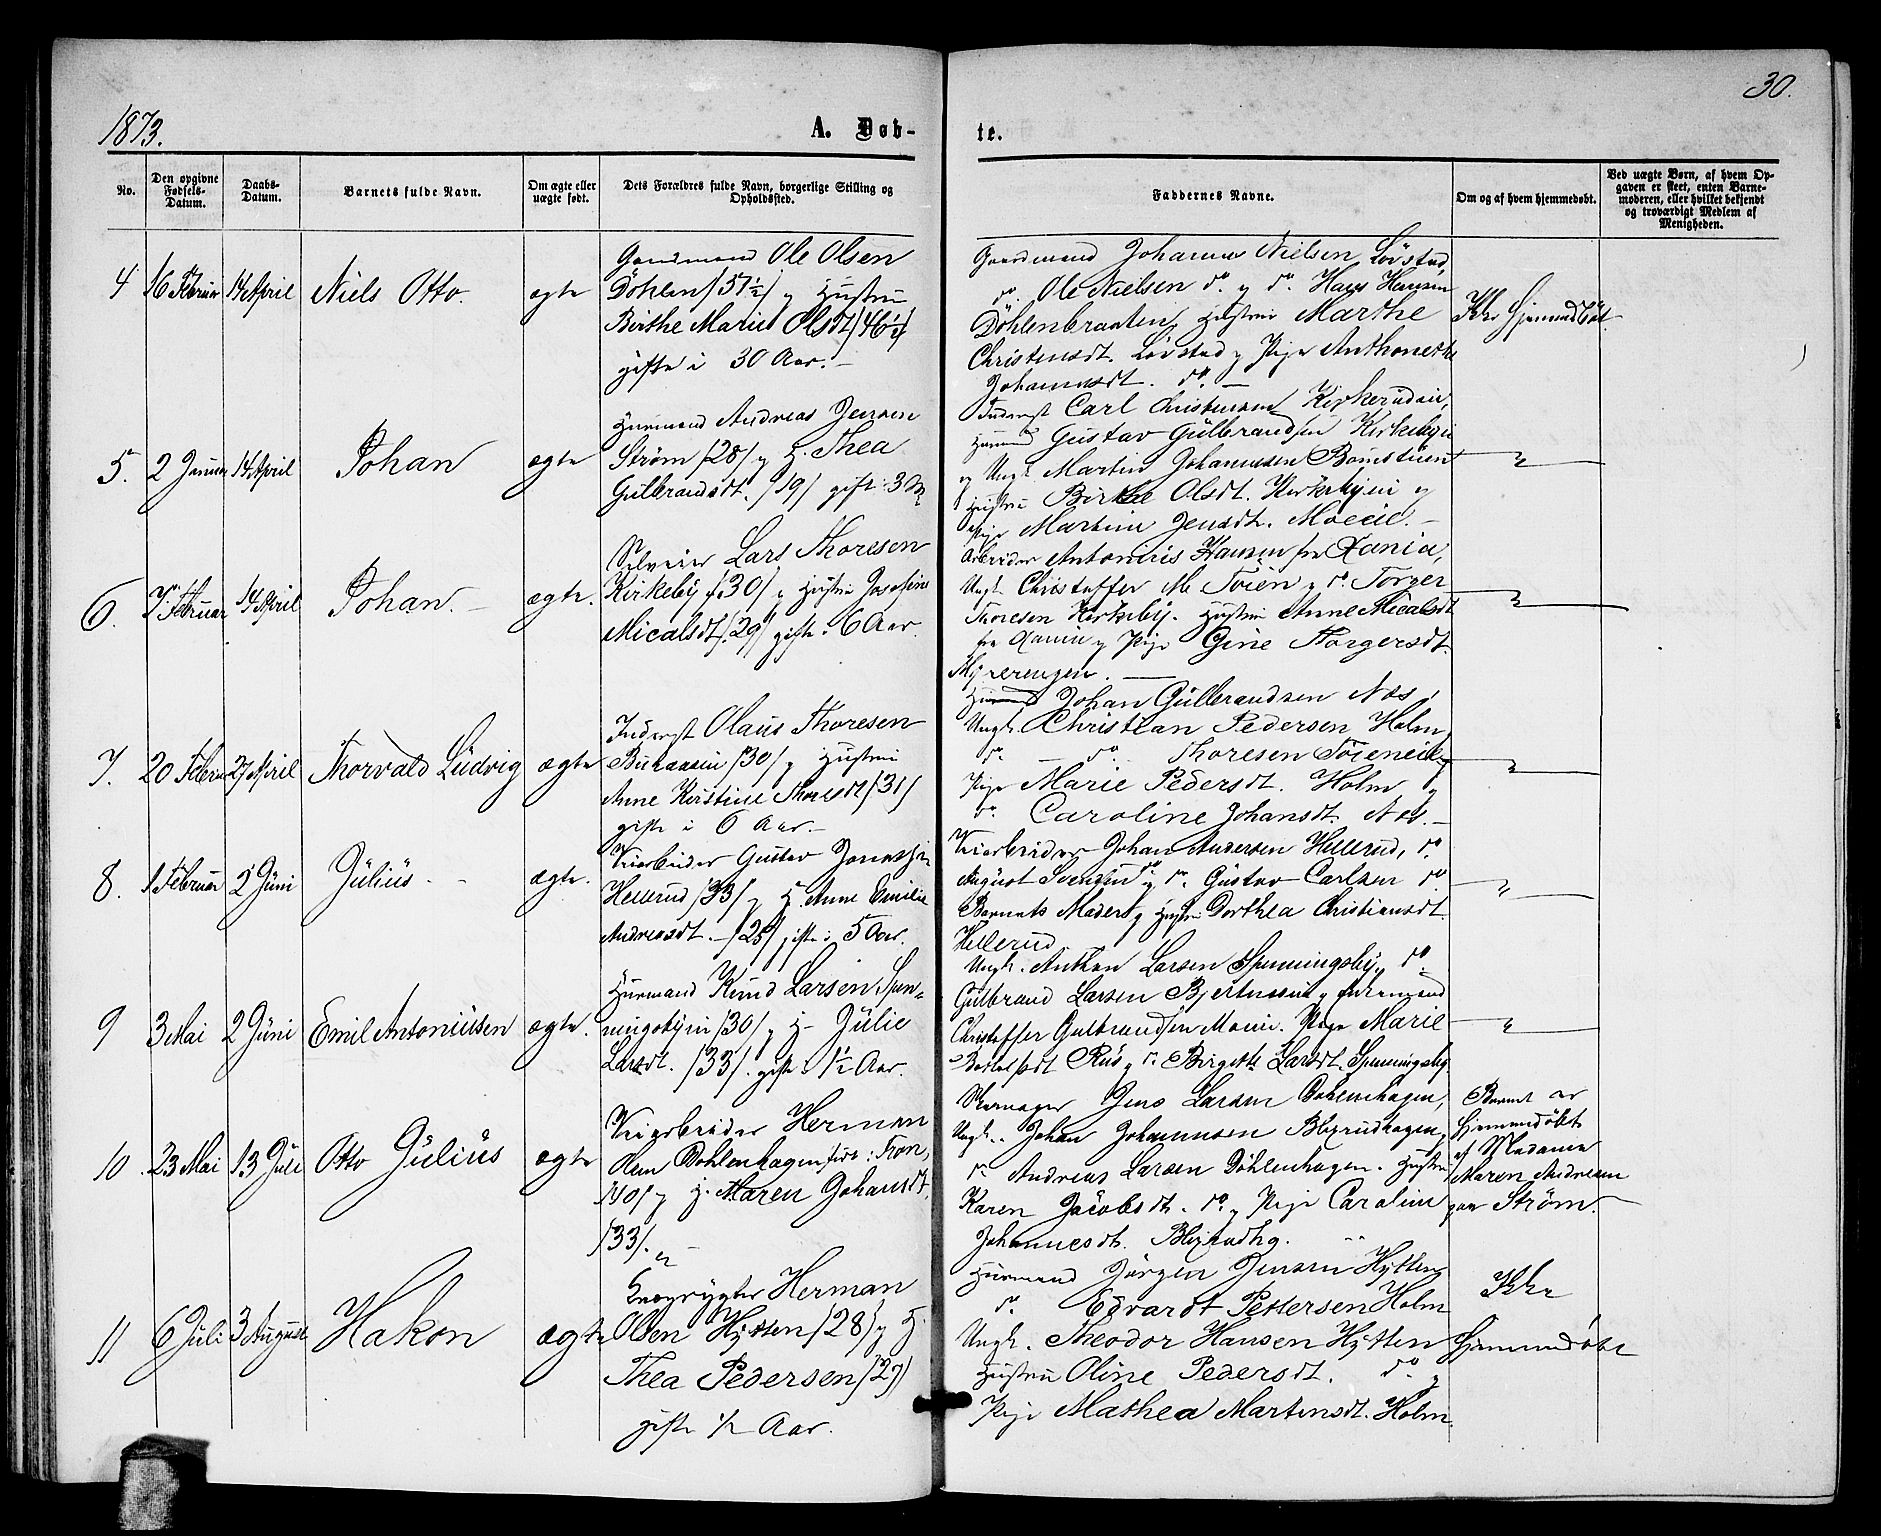 30.
1873.
A. Døb-
te.
No.
Den opgivne Fødsels-Datum.
Daabs-Datum.
Barnets fulde Navn.
Om ægte eller uægte født.
Dets Forældres fulde Navn, borgerlige Stilling og Opholdssted.
Faddernes Navne.
Om og af hvem hjemmedøbt.
Ved uægte Børn, af hvem Opgaven er skeet, enten Barnemoderen, eller hvilket bekjendt og troværdigt Medlem af Menigheden.
4 16 Februar 14 April Niels Otto. ægte
Gaardmand Ole Olsen
Döhlen /57½/ og Hustru
Birthe Marie Olsdt /46½/
gifte i 30 Aar. -
Gaardmand Johannes Nielsen Løvstad,
do. Ole Nielsen do. og do. Hans Hansen
Döhlenbraaten, Hustru Marthe
Christensdt. Løvstad og Pige Anthonette
Johannesdt. do. -
Ikke Hjemmedøbt
5. 2 Januar 14 April Johan ægte
Husmand Andreas Jensen
Strøm /28/ og H. Thea
Gulbrandsdt. /19/ gift 3 M.
Inderst Carl Christensen Kirkerudein,
Husmand Gustav Gülbrandsen Kirkebyei
og Ungk. Martin Johannesen
Hustru Birthe Olsdt. Kirkebyei og
Pige Martine Jensdt. Moeeie. -
6. 7 Februar 14 April Johan. - ægte.
Selveier Lars Thoresen
Kirkeby /30/ og Hustru Josefine
Micalsdt /29/ gifte i 6 Aar.
Arbeider Antonius Hansen fra Xania,
Ungk. Christoffer M. Toien og do. Torger
Thoresen Kirkeby. Hustru Anne Micalsdt
fra Xania og Pige Gine Torgersdt.
Myrerengen. -
7. 20 Februar 27 April Thorvald Lüdvig ægte
Inderst Olaus Thoresen
/30/ og Hustru
Anne Kirstine Thoresdt /31/
gifte i 6 Aar. -
Husmand Johan Gülbrandsen Næs,
Ungk. Christian Pedersen Holm,
do. - do. Thoresen
Pige Marie Pedersdt. Holm og
do. Caroline Johansdt. Næs. -
8. 1 Februar 2 Jüni Jülius - - ægte.
Veiarbeider Gustav
Hellerud /33/ og H. Anne Emilie
Andreasdt. - /25/ gifte i 5 Aar.
Veiarbeider Johan Andersen Hellerud, do.
August Svendsen do. og do. Güstav Carlsen do.
Barnets Moder og Hustru Dorthea Christiansdt.
Hellerud.
9 3 Mai 2 Jüni Emil Antoniüsen ægte.
Husmand Knud Larsen Spen-
ningsbyein /30/ og H- Jülie
Larsdt. /33/. gifte i 1½ Aar.
Ungk. Anthon Larsen Spenningsby, do.
Gülbrand Larsen og Husmand
Christoffer Gulbrandsen Moeie. Pige Marie
Rüs og do. Birgitte Larsdt. Spenningsby.
10. 23 Mai 13 Jüli Otto Jülius ægte
Veiarbeider Herman
Olsen Döhlenhagen
/40/ og H. Maren Johansdt.
/33/. -
Skomager Jens Larsen Döhlenhagen,
Ungk. Johan Johannesen Blixrudhagen,
do. Andreas Larsen Döhlenhagen. Hustru
Karen Jacobsdt. do. og Pige Caroline
Johannesdt. Blixrudhg.
Barnet er
Hjemmedøbt
af Madame
Maren Andresen
paa Strøm. -
11 6 Juli 3 August Hakon ægte
Herman
Olsen Hytten /28/ og H.
Thea Pedersen /27/
gifte 1/2 Aar.
Husmand Jørgen Jensen Hytten
do. Edvardt Pettersen Holm
Ungk. Theodor Hansen Hytten
Hustru Oline Pedersdt. do. og
Pige Mathea Martensdt. Holm.
Ikke
Hjemmedøbt